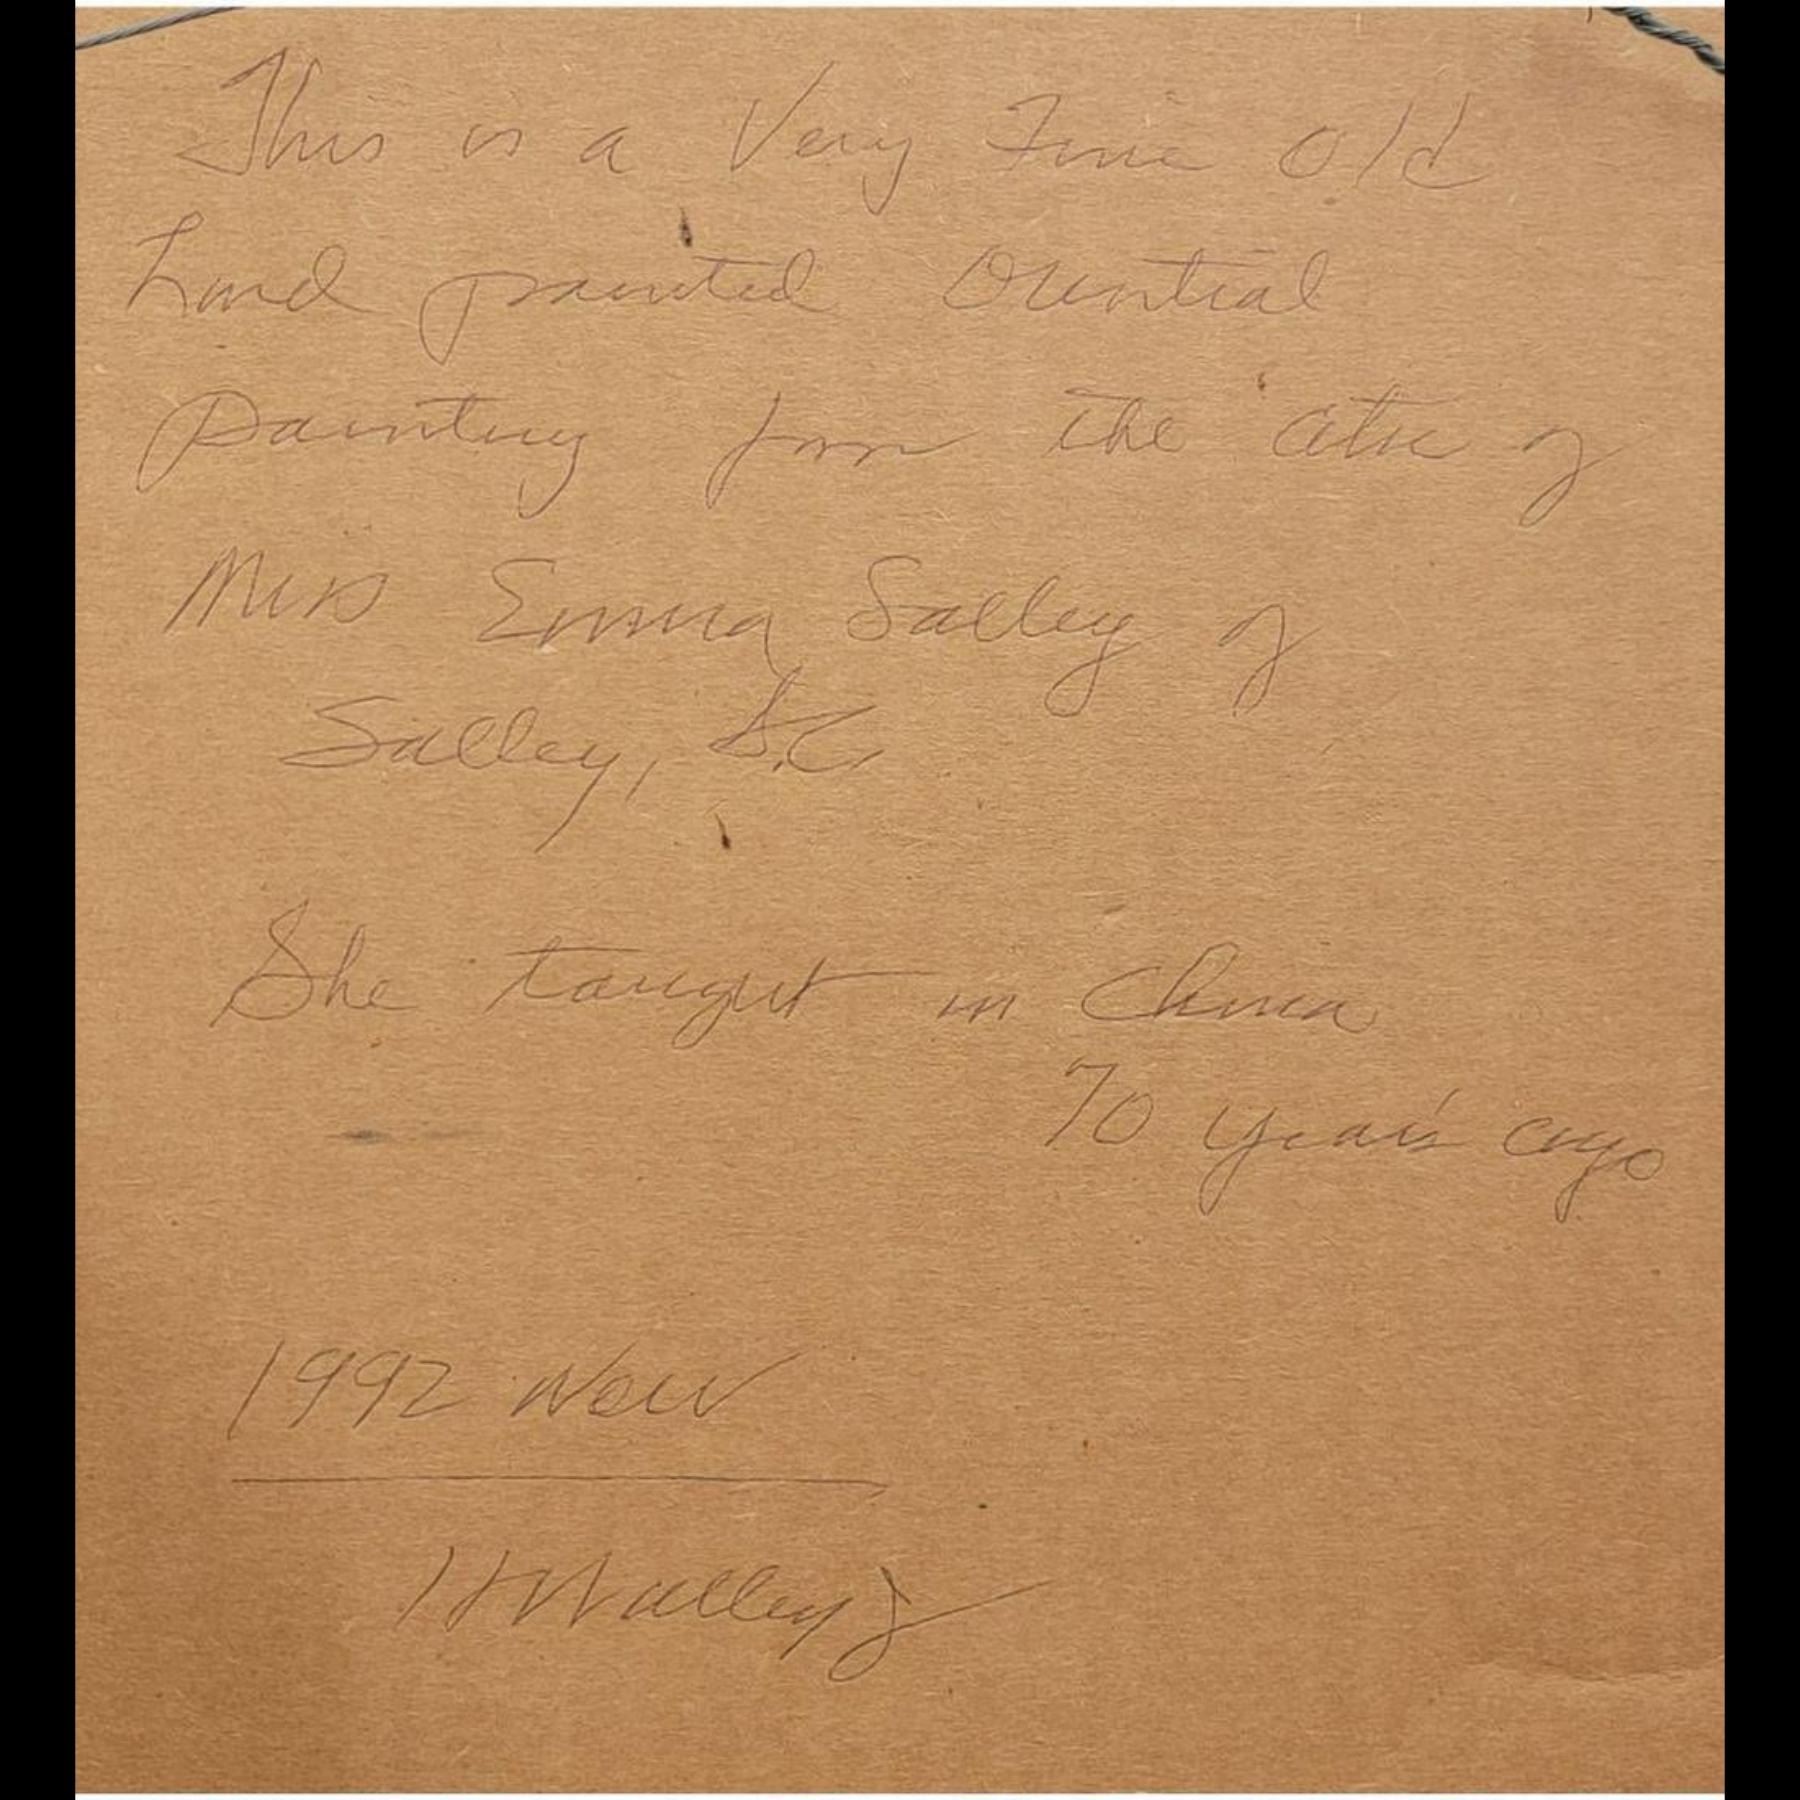 This is a Very Fine old
hand painted Oriental
Painting from the
Miss Emma Salley of
Salley, S.C.
She taught in China
70 years ago
1992 now